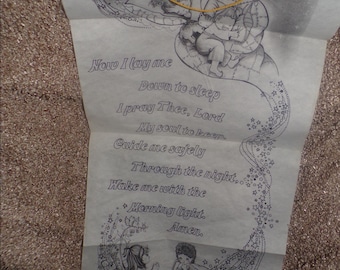 Now I lay me
Down to sleep
I pray Thee, Lord
My soul to keep.
Guide me safely
Through the night...
Wake me with the
Morning light.
Amen.